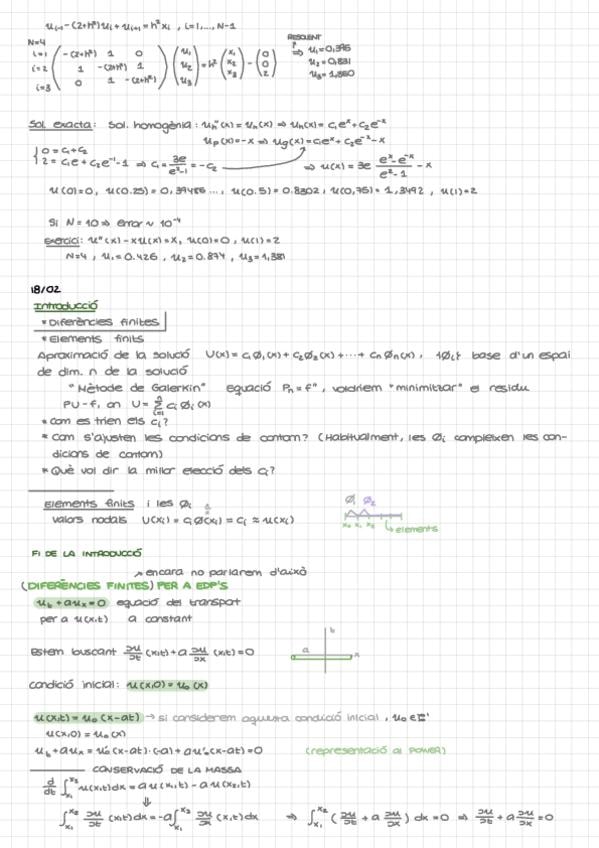 u_{i-1} - (2+h²)u_i + u_{i+1} = h² x_i , i=1,..., N-1
N=4
i=1
i=2
i=3
( -(2+h²) 1 0
1 -(2+h²) 1
0 1 -(2+h²) ) ( u₁
u₂
u₃ ) = h² ( x₁
x₂
x₃ ) - ( 0
0
2 )
RESOLENT
⇒ u₁=0,395
u₂=0,831
u₃=1,350
Sol. exacta: Sol. homogènia: u_h''(x) = u_h(x) ⇒ u_h(x) = c₁eˣ + c₂e⁻ˣ
u_p(x) = -x ⇒ u_g(x) = c₁eˣ + c₂e⁻ˣ - x
{ 0 = c₁ + c₂
2 = c₁e + c₂e⁻¹ - 1 ⇒ c₁ = 3e/(e²-1) = -c₂ ⇒ u(x) = 3e (eˣ - e⁻ˣ)/(e²-1) - x
u(0)=0, u(0.25)=0,39486..., u(0.5)=0.8302, u(0,75)=1,3492, u(1)=2
Si N=10 ⇒ error ~ 10⁻⁴
exercici: u''(x) - xu(x) = x, u(0)=0, u(1)=2
N=4, u₁=0.426, u₂=0.874, u₃=1,381
18/02
Introducció
* Diferències finites
* Elements finits
Aproximació de la solució U(x) = c₁Ø₁(x) + c₂Ø₂(x) + ··· + cₙØₙ(x), {Ø_i} base d'un espai
de dim. n de la solució
"Mètode de Galerkin" equació Pu = f", voldriem "minimitzar" el residu
PU - f, on U = Σ_{i=1}^{n} c_i Ø_i(x)
* Com es trien els c_i?
* Com s'ajusten les condicions de contorn? (Habitualment, les Ø_i compleixen les con-
dicions de contorn)
* Què vol dir la millor elecció dels c_i?
Elements finits i les Ø_i
valors nodals U(x_i) = c_i Ø(x_i) = c_i ≈ u(x_i)
Ø₁ Ø₂
x₀ x₁ x₂
↳ elements
FI DE LA INTRODUCCIÓ
↗ encara no parlarem d'això
(DIFERÈNCIES FINITES) PER A EDP'S
u_t + au_x = 0 equació del transport
per a u(x,t) a constant
Estem buscant ∂u/∂t (x,t) + a ∂u/∂x (x,t) = 0
t
a
x
condició inicial: u(x,0) = u₀(x)
u(x,t) = u₀(x-at) → si considerem aquesta condició inicial, u₀ ∈ C¹
u(x,0) = u₀(x)
u_t + au_x = u₀'(x-at)·(-a) + au₀'(x-at) = 0 (representació al POWER)
CONSERVACIÓ DE LA MASSA
d/dt ∫_{x₁}^{x₂} u(x,t)dx = au(x₁,t) - au(x₂,t)
⇓
∫_{x₁}^{x₂} ∂u/∂t (x,t)dx = -a∫_{x₁}^{x₂} ∂u/∂x (x,t)dx ⇒ ∫_{x₁}^{x₂} (∂u/∂t + a ∂u/∂x) dx = 0 ⇒ ∂u/∂t + a ∂u/∂x = 0